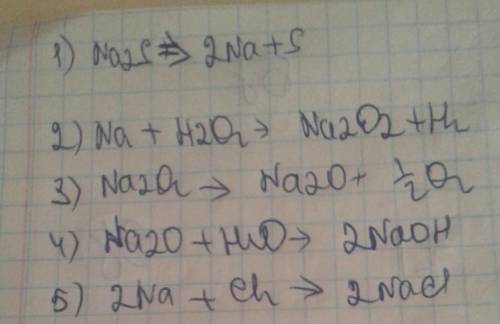 1) Na2S => 2Na + S
2) Na + H2O2 → Na2O2 + H2
3) Na2O2 → Na2O + 1/2 O2
4) Na2O + H2O → 2NaOH
5) 2Na + Cl2 → 2NaCl